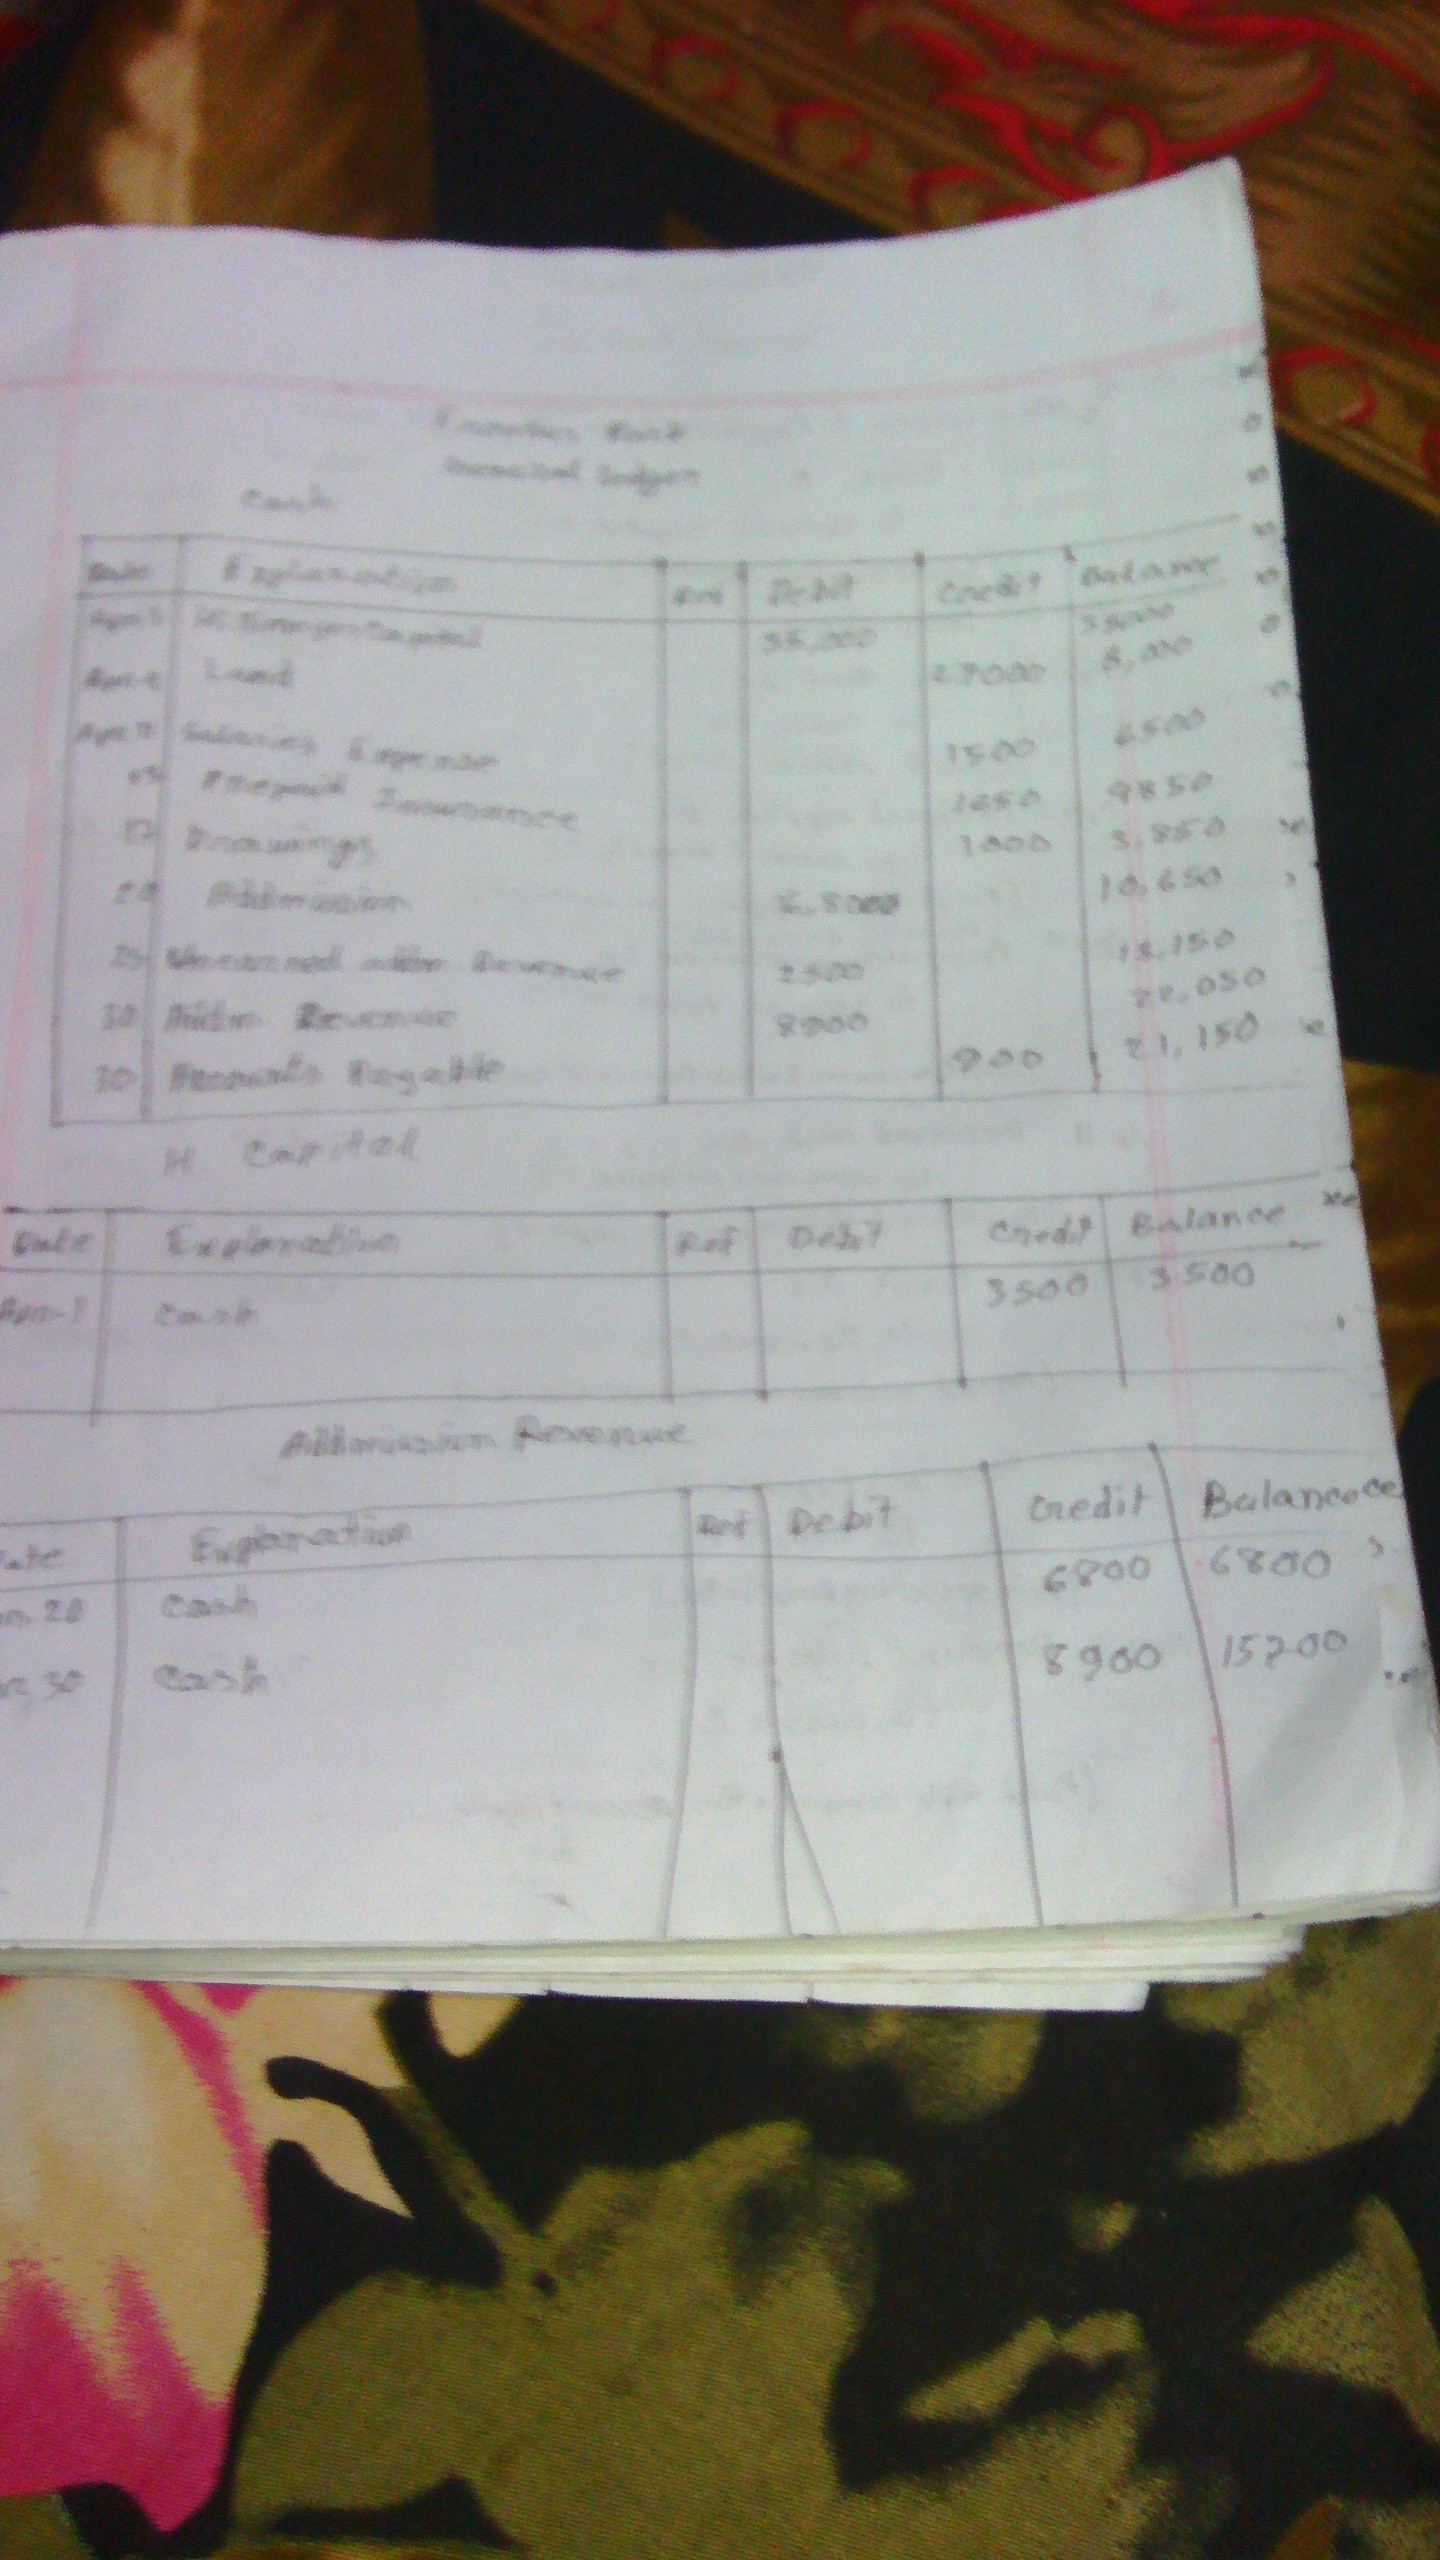 General Ledger
Cash
Date Explanation Ref Debit Credit Balance
Apr-1 Capital 35,000 35000
Apr-4 Land 27000 8,000
Apr-8 Salaries Expense 1500 6500
Prepaid Insurance 1650 4850
17 Drawings 1000 3,850
20 Addmission 6,8000 10,650
25 Unearned addm Revenue 2500 13,150
30 Addm Revenue 8900 22,050
30 Accounts Payable 900 21,150
H Capital
Date Explanation Ref Debit Credit Balance
Apr-1 Cash 3500 3500
Addmission Revenue
ate Explanation Ref Debit Credit Balance
20 Cash 6800 6800
30 Cash 8900 15700